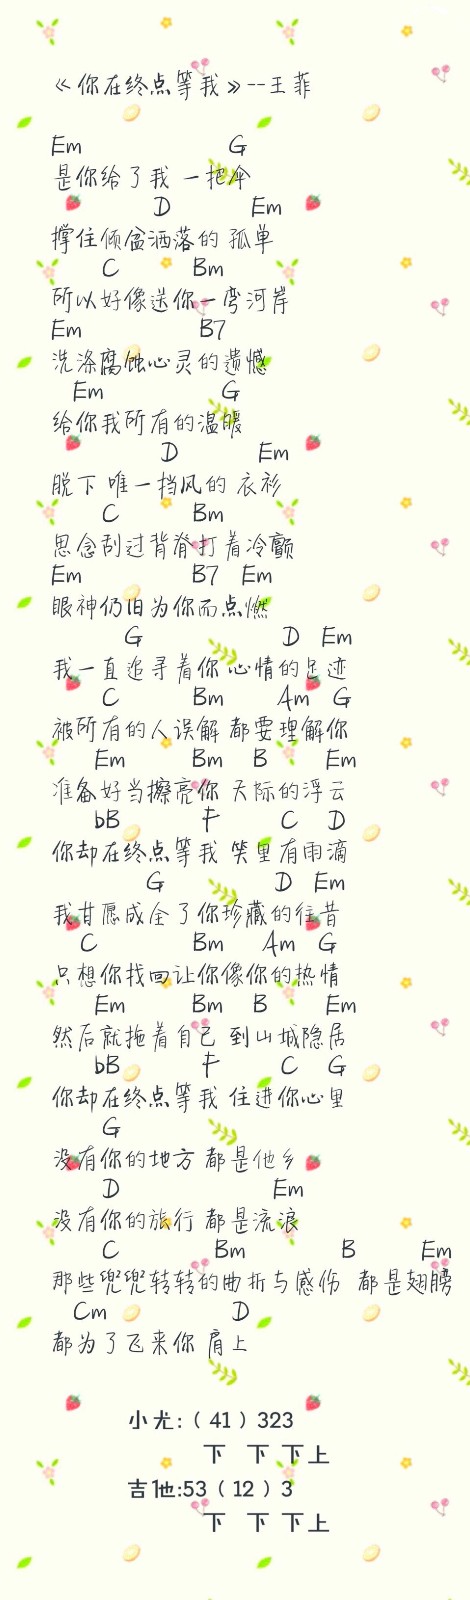 《你在终点等我》--王菲
Em G
是你给了我 一把伞
D Em
撑住倾盆洒落的 孤单
C Bm
所以好像送你一弯河岸
Em B7
洗涤腐蚀心灵的遗憾
Em G
给你我所有的温暖
D Em
脱下 唯一挡风的 衣衫
C Bm
思念刮过背脊打着冷颤
Em B7 Em
眼神仍旧为你而点燃
G D Em
我一直追寻着你 心情的足迹
C Bm Am G
被所有的人误解 都要理解你
Em Bm B Em
准备好当擦亮你 天际的浮云
bB F C D
你却在终点等我 笑里有雨滴
G D Em
我甘愿成全了你珍藏的往昔
C Bm Am G
只想你找回让你像你的热情
Em Bm B Em
然后就拖着自己 到山城隐居
bB F C G
你却在终点等我 住进你心里
G
没有你的地方 都是他乡
D Em
没有你的旅行 都是流浪
C Bm B Em
那些兜兜转转的曲折与感伤 都是翅膀
Cm D
都为了飞来你 肩上
小尤:（41）323
下 下 下上
吉他:53（12）3
下 下 下上